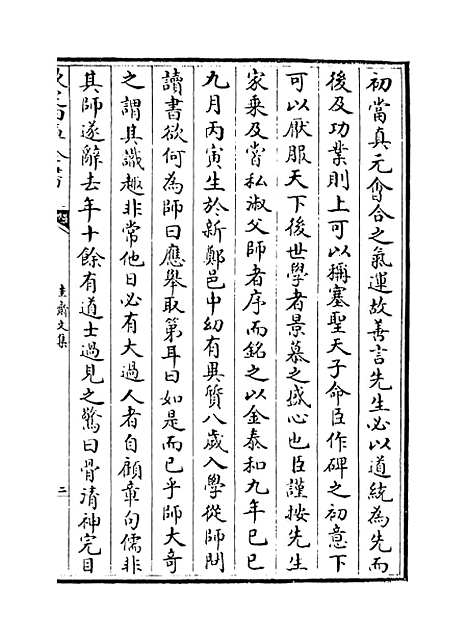 初當真元會合之氣運故善言先生必以道統為先而
後及功業則上可以稱塞聖天子命臣作碑之初意下
可以厭服天下後世學者景慕之盛心也臣謹按先生
家乘及嘗私淑父師者序而銘之以金泰和九年己巳
九月丙寅生於新鄭邑中幼有異質八歲入學從師問
讀書欲何為師曰應舉取第耳曰如是而已乎師大奇
之謂其識趣非常他日必有大過人者自顧章句儒非
其師遂辭去年十餘有道士過見之驚曰骨清神完目
圭齋文集
三